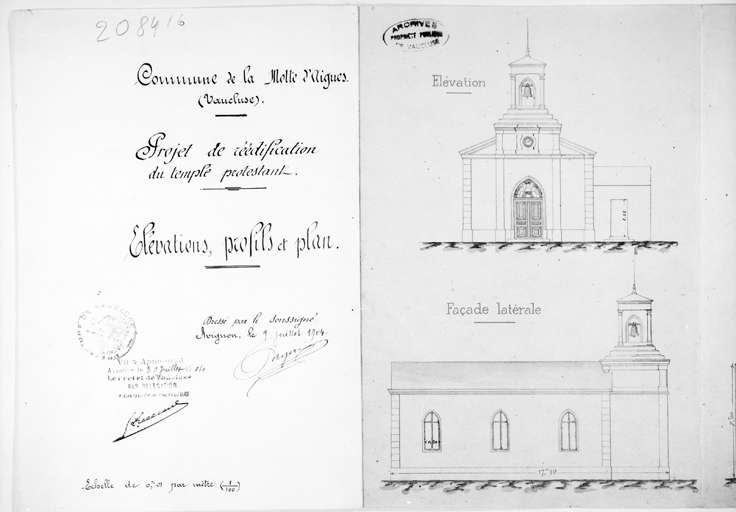 20841⁶
Commune de la Motte d'Aigues.
(Vaucluse).
Projet de réédification
du temple protestant.
Elévations, profils et plan.
Dressé par le soussigné
Avignon, le 9 juillet 1904
Vu & Approuvé
Avignon, le 30 Juillet
Le Préfet de Vaucluse
PAR DÉLÉGATION
Echelle de 0,ᵐ01 par mètre (1/100)
ARCHIVES
PROPRIÉTÉ PUBLIQUE
DE VAUCLUSE
Elévation
Façade latérale
17,ᵐ10